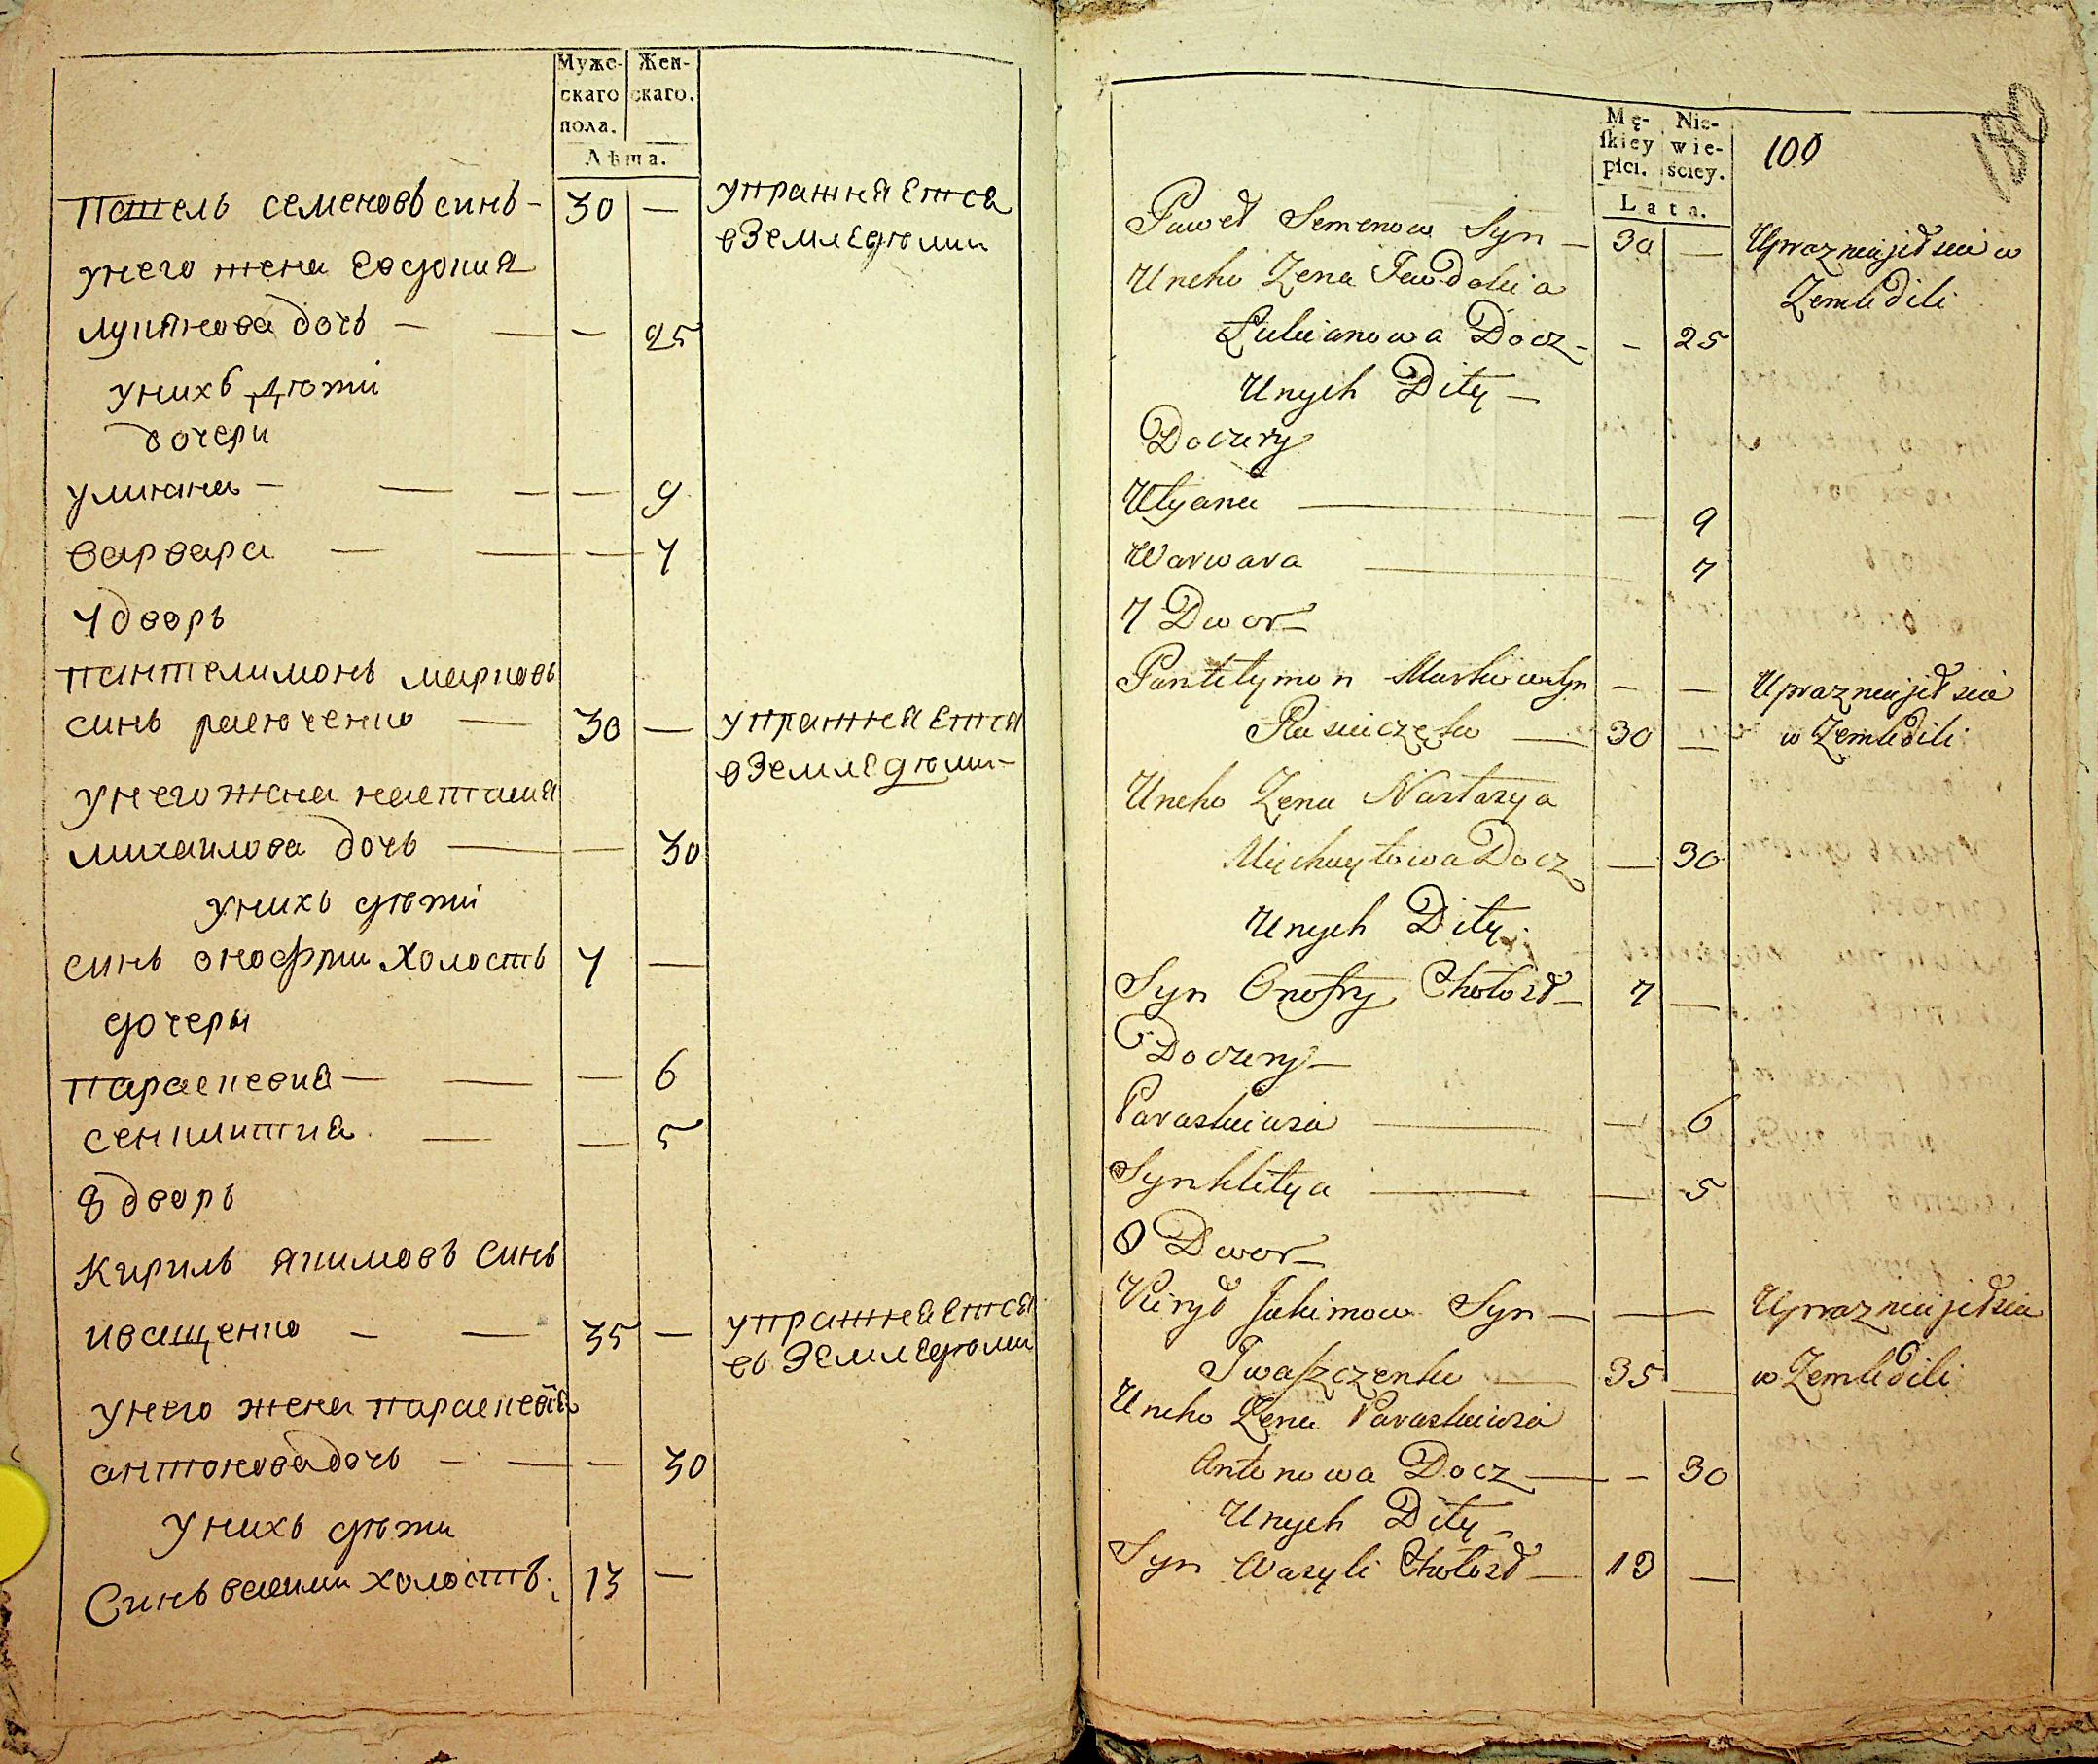 Муже-
скаго
пола.
Жен-
скаго.
Лѣта.
павель семеновъ синъ - 30 —
упражняется
в земледѣлии
унего жена евдокия
лукянова дочь — — — 25
унихъ дѣти
дочери
улияна — — — — 9
варвара — — — 7
7 дворъ
пантелимонъ марковъ
синъ расюченко — 30 —
упражняется
в земледѣлии -
унего жена настасия
михаилова дочь — — 30
унихъ дѣти
синъ онофрии холостъ 7 —
дочеры
параскевия — — — 6
сенклития — — 5
8 дворъ
Кирилъ якимовъ синъ
иващенко — — 35 —
упражняется
въ земледѣлии
унего жена параскевія
антонова дочь — — — 30
унихъ дѣти
Синъ василии холостъ. 13 —
Mę-
ſkiey
płci.
Nie-
wie-
ściey.
Lata.
100
180
Paweł Semenow Syn — 30 —
Uprazniajetsia w
Zemledili
Uneho Zena Jewdokia
Łukianowa Docz - - 25
Unych Dity —
Doczery
Ulyana — — 9
Warwara — 7
7 Dwor —
Pantelymon Markow Syn — —
Uprazniajetsia
w Zemledili
Rasiuczenko — 30 —
Uneho Zena Nastazya
Mychayłowa Docz — 30
Unych Dity.
Syn Onofry Chołost — 7 —
Doczery —
Paraskiewia — — 6
Synklitya — — 5
8 Dwor —
Kirył Jakimow Syn — —
Uprazniajetsia
w Zemledili
Iwaſzczenko — 35 —
Uneho Zena Paraskiewia
Antonowa Docz — - 30
Unych Dity —
Syn Wasyli Chołost — 13 —